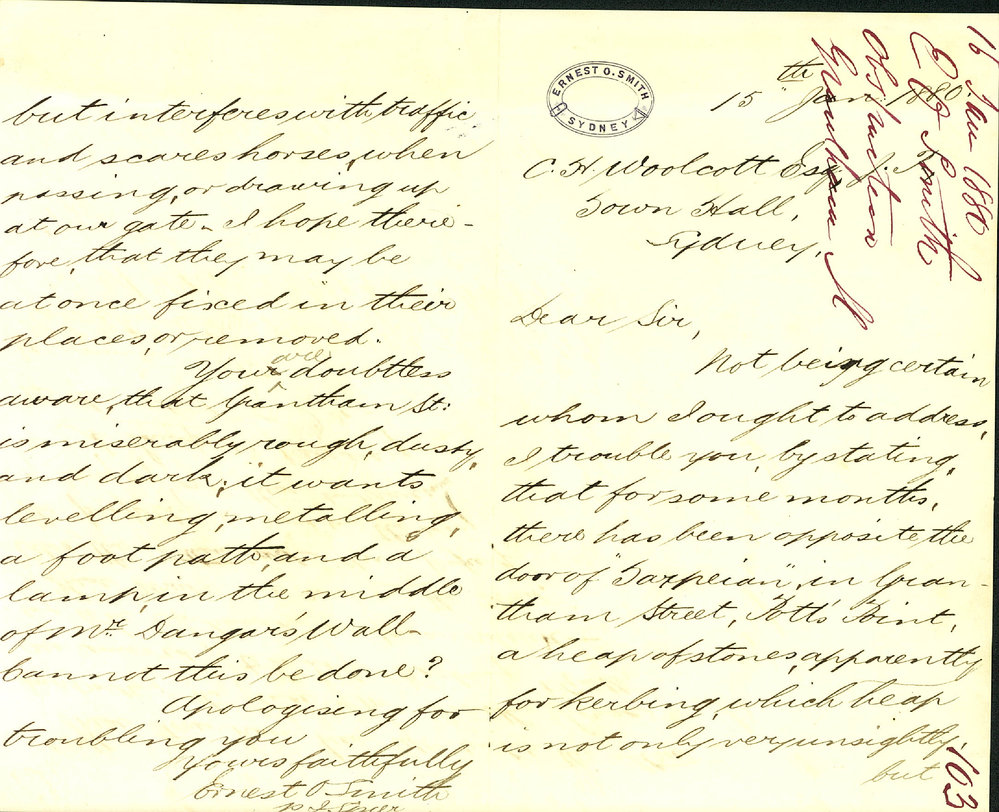 ERNEST O. SMITH
SYDNEY
15th Jan. 1880
C. H. Woolcott Esq. J.
Town Hall,
Sydney,
Dear Sir,
Not being certain
whom I ought to address,
I trouble you, by stating,
that for some months,
there has been opposite the
door of "Tarpeian", in Gran-
tham Street, Potts' Point,
a heap of stones, apparently
for kerbing, which heap
is not only very unsightly,
but
but interferes with traffic
and scares horses, when
passing, or drawing up
at our gate - I hope there-
fore, that they may be
at once fixed in their
places, or removed.
You are doubtless
aware, that Grantham St:
is miserably rough, dusty,
and dark; it wants
levelling, metalling,
a foot path, and a
lamp, in the middle
of Mr. Dangar's Wall -
Cannot this be done?
Apologising for
troubling you
Yours faithfully
Ernest O Smith
16 Jan 1880
E O Smith
Obstruction
Grantham St
103